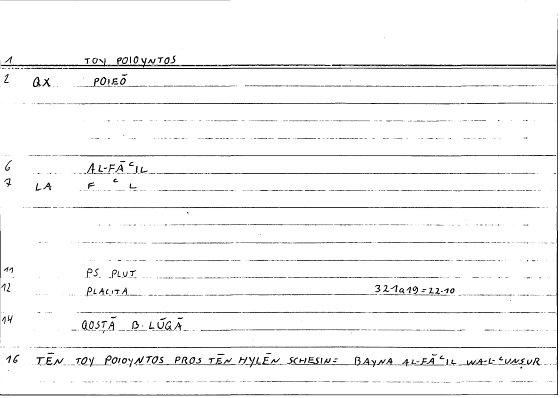 1 TOY POIOYNTOS
2 QX POIEŌ
6 AL-FĀʿIL
7 LA F ʿ L
11 PS. PLUT.
12 PLACITA 321a19=22.10
14 QOSṬĀ B. LŪQĀ
16 TĒN TOY POIOYNTOS PROS TĒN HYLĒN SCHESIN= BAYNA AL-FĀʿIL WA-L-ʿUNṢUR